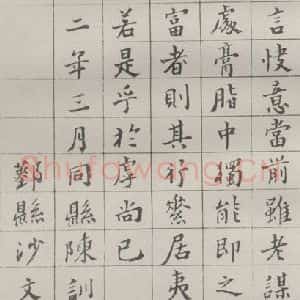 言快意當前雖老謀
處膏脂中獨能即之
富者則其行鸞居夷
若是乎於虖尚已
二年三月同縣陳訓
鄞縣沙文
Shufawang.Cn